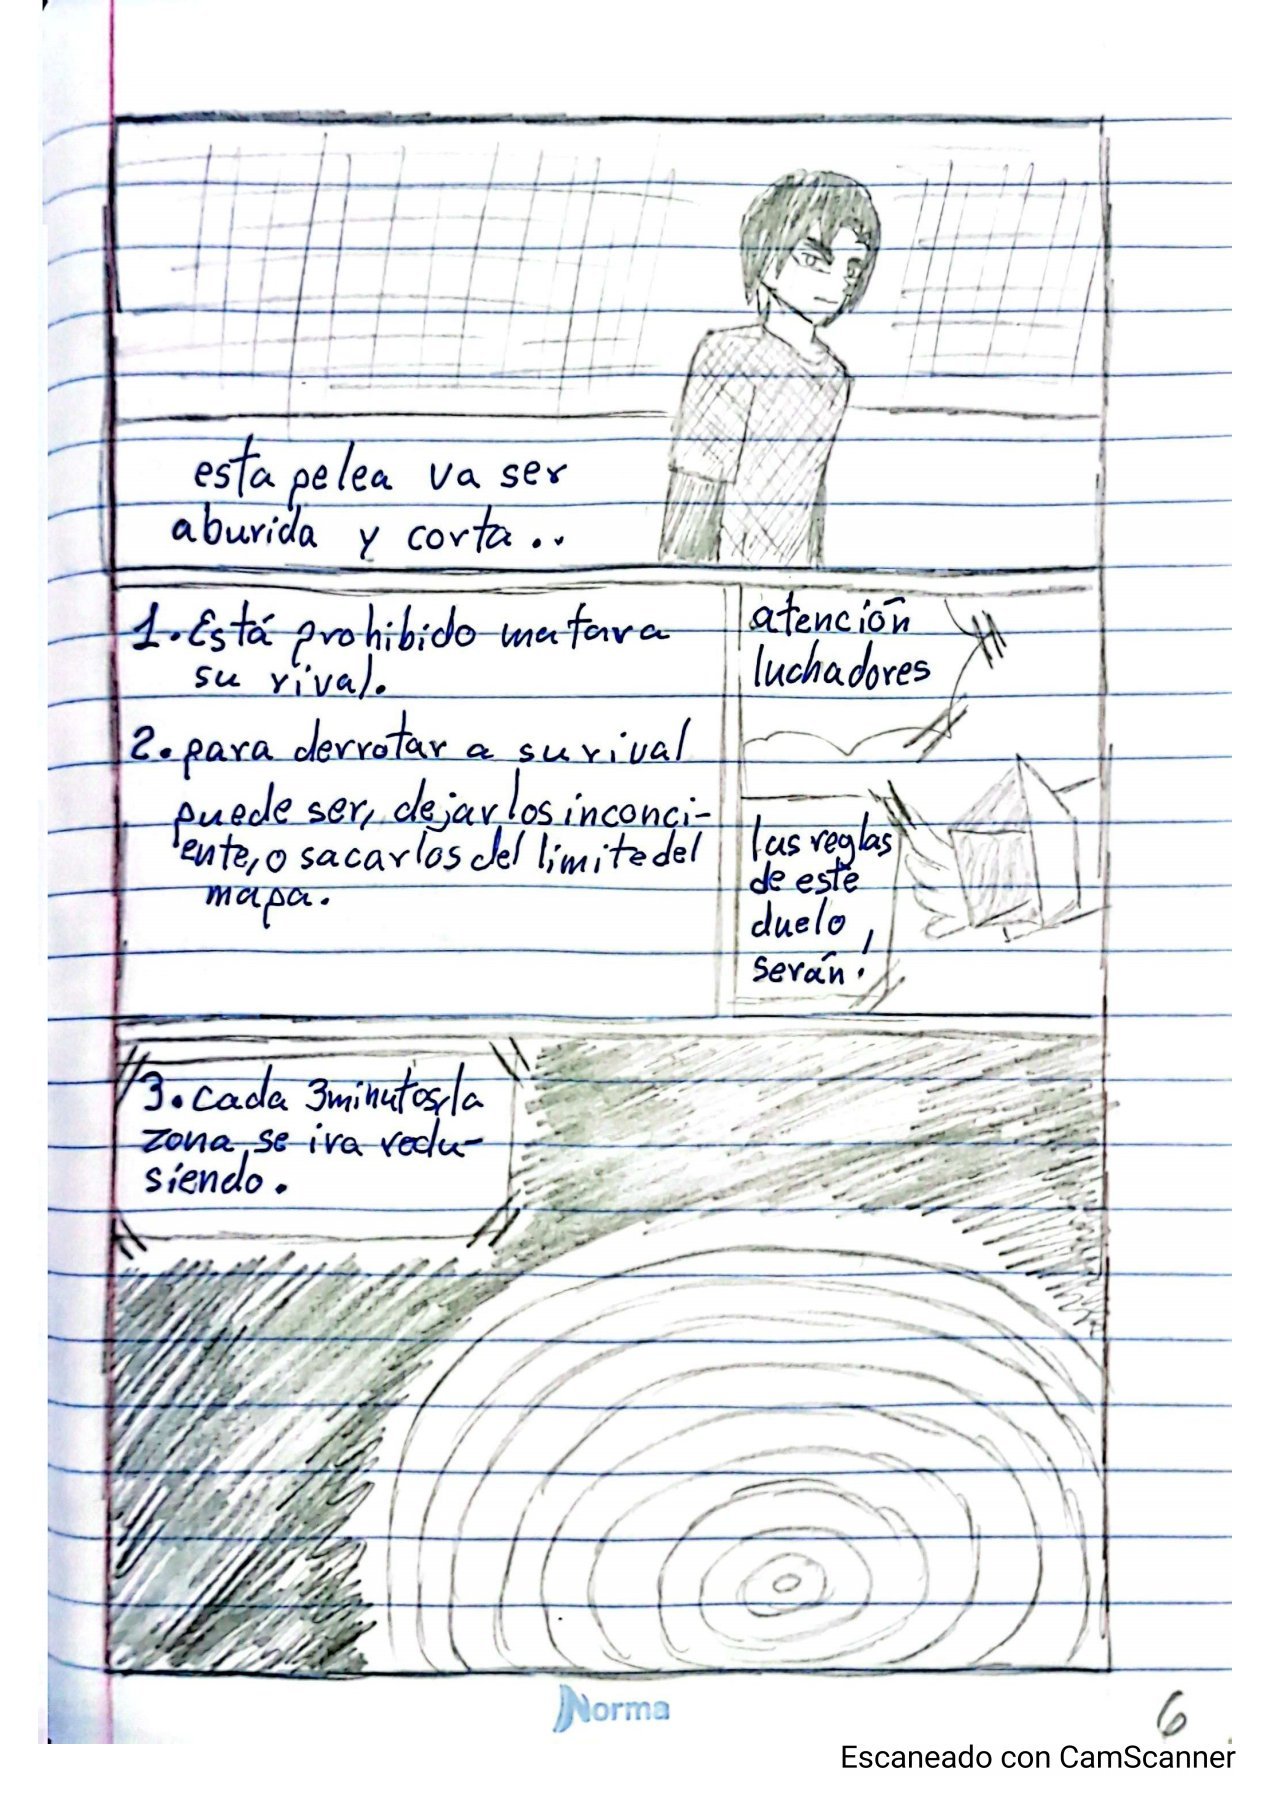 esta pelea va ser
aburida y corta..
atención
luchadores
las reglas
de este
duelo,
serán.
1. Está prohibido matar a
su rival.
2. para derrotar a su rival
puede ser, dejarlos inconci-
ente, o sacarlos del limite del
mapa.
3. cada 3 minutos, la
zona, se ira redu-
siendo.
Norma
6
Escaneado con CamScanner